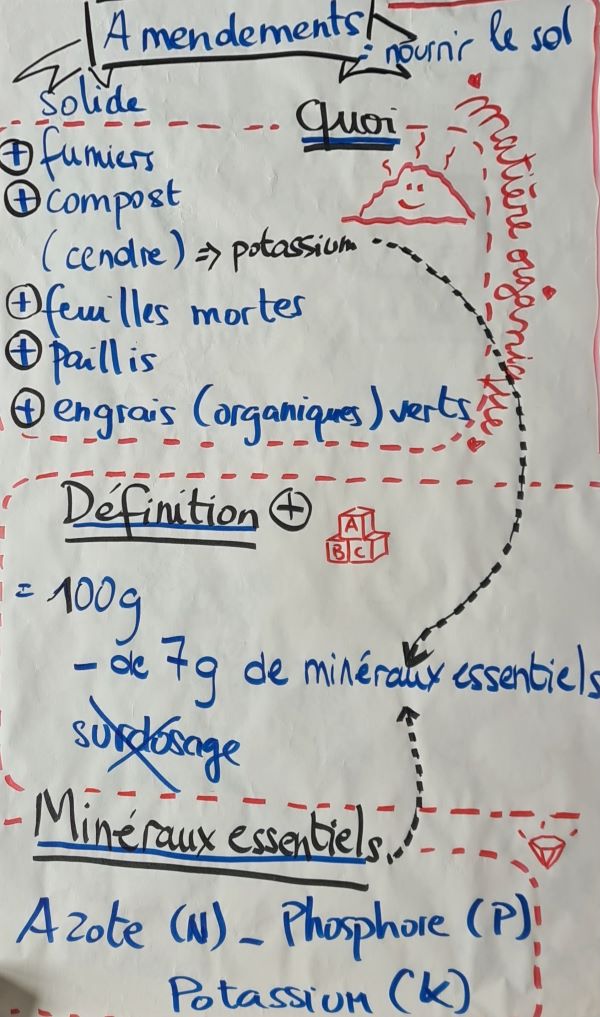 Amendements
: nourrir le sol
solide
Quoi
matière organique
+ fumiers
+ compost
(cendre) ⇒ potassium
+ feuilles mortes
+ paillis
+ engrais (organiques) verts
Définition +
A
B C
= 100g
- de 7g de minéraux essentiels
surdosage
Minéraux essentiels
Azote (N) - Phosphore (P)
Potassium (K)